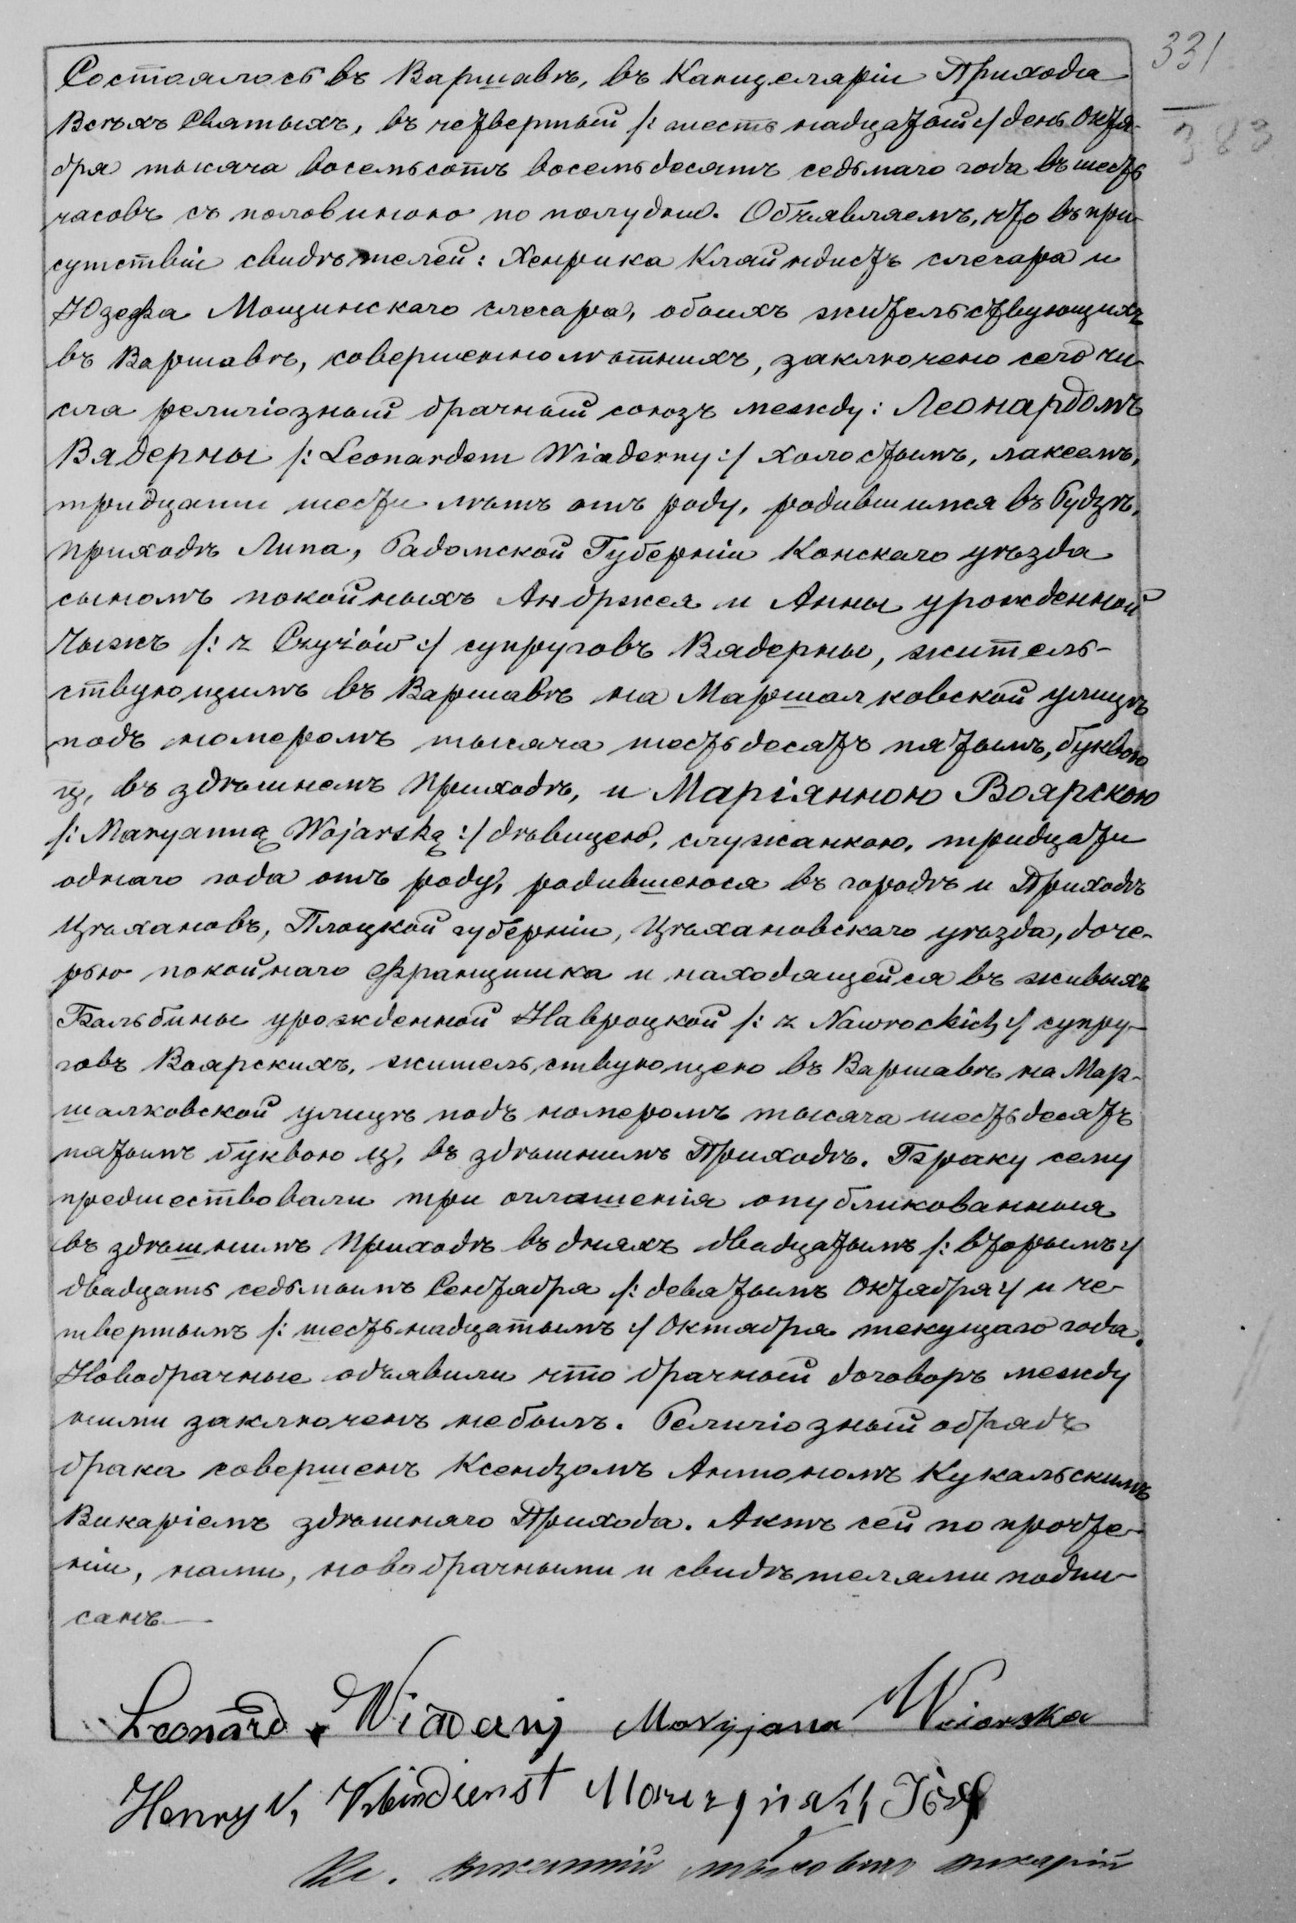 331
383
Состоялось въ Варшавѣ, въ Канцеляріи Прихода
Всѣхъ Святыхъ, въ четвертый /: шестьнадцатый :/ день Октя-
бря тысяча восемьсотъ восемьдесятъ седьмаго года въ шесть
часовъ съ половиною по полудни. Объявляемъ, что въ при-
сутствіи свидѣтелей: Хенрика Клайндистъ слесара и
Юзефа Мощинскаго слесара, обоихъ жительствующихъ
въ Варшавѣ, совершеннолѣтнихъ, заключено сего чи-
сла религіозный брачный союзъ между: Леонардомъ
Вядерны /: Leonardem Wiaderny :/ холостымъ, лакеемъ,
тридцати шести лѣтъ отъ роду, родившимся въ Рудзѣ,
приходѣ Липа, Радомской Губерніи Конскаго уѣзда
сыномъ покойныхъ Андржея и Анны урожденной
Чыжъ /: z Czyżów :/ супруговъ Вядерны, житель-
ствующимъ въ Варшавѣ на Маршалковской улицѣ
подъ номеромъ тысяча шестьдесятъ пятымъ, буквою
ц, въ здѣшнемъ Приходѣ, и Маріянною Воярскою
/: Maryanną Wojarską :/ дѣвицею, служанкою, тридцати
одного года отъ роду, родившеюся въ городѣ и Приходѣ
Цѣхановъ, Плоцкой губерніи, Цѣхановскаго уѣзда, доче-
рью покойнаго Францишка и находящейся въ живыхъ
Бальбины урожденной Навроцкой /: z Nawrockich :/ супру-
говъ Воярскихъ, жительствующею въ Варшавѣ на Мар-
шалковской улицѣ подъ номеромъ тысяча шестьдесятъ
пятымъ буквою ц, въ здѣшнимъ Приходѣ. Браку сему
предшествовали три оглашенія опубликованныя
въ здѣшнимъ Приходѣ въ дняхъ двадцатымъ /: вторымъ :/
двадцать седьмымъ Сентября /: девятымъ Октября :/ и че-
твертымъ /: шестьнадцатымъ :/ Октября текущаго года.
Новобрачные объявили что брачный договоръ между
ними заключенъ небылъ. Религіозный обрядъ
брака совершенъ Ксендзомъ Антономъ Кукальскимъ
Викаріемъ здѣшняго Прихода. Актъ сей по прочте-
ніи, нами, новобрачными и свидѣтелями подпи-
санъ
Leonard Wiaderny Maryjana Woiarska
Henryk Kleindienst Moszczynski Józef
Кс. викарій